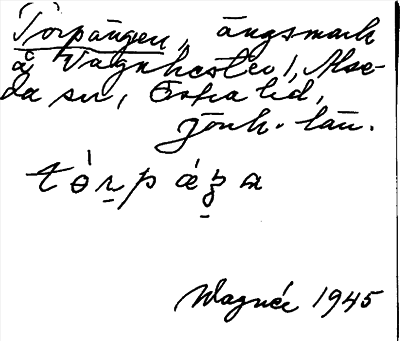 Torpängen, ängsmark
å Vagnhester, Alse-
da sn, Östra hd,
Jönk. län.
Wagnér 1945